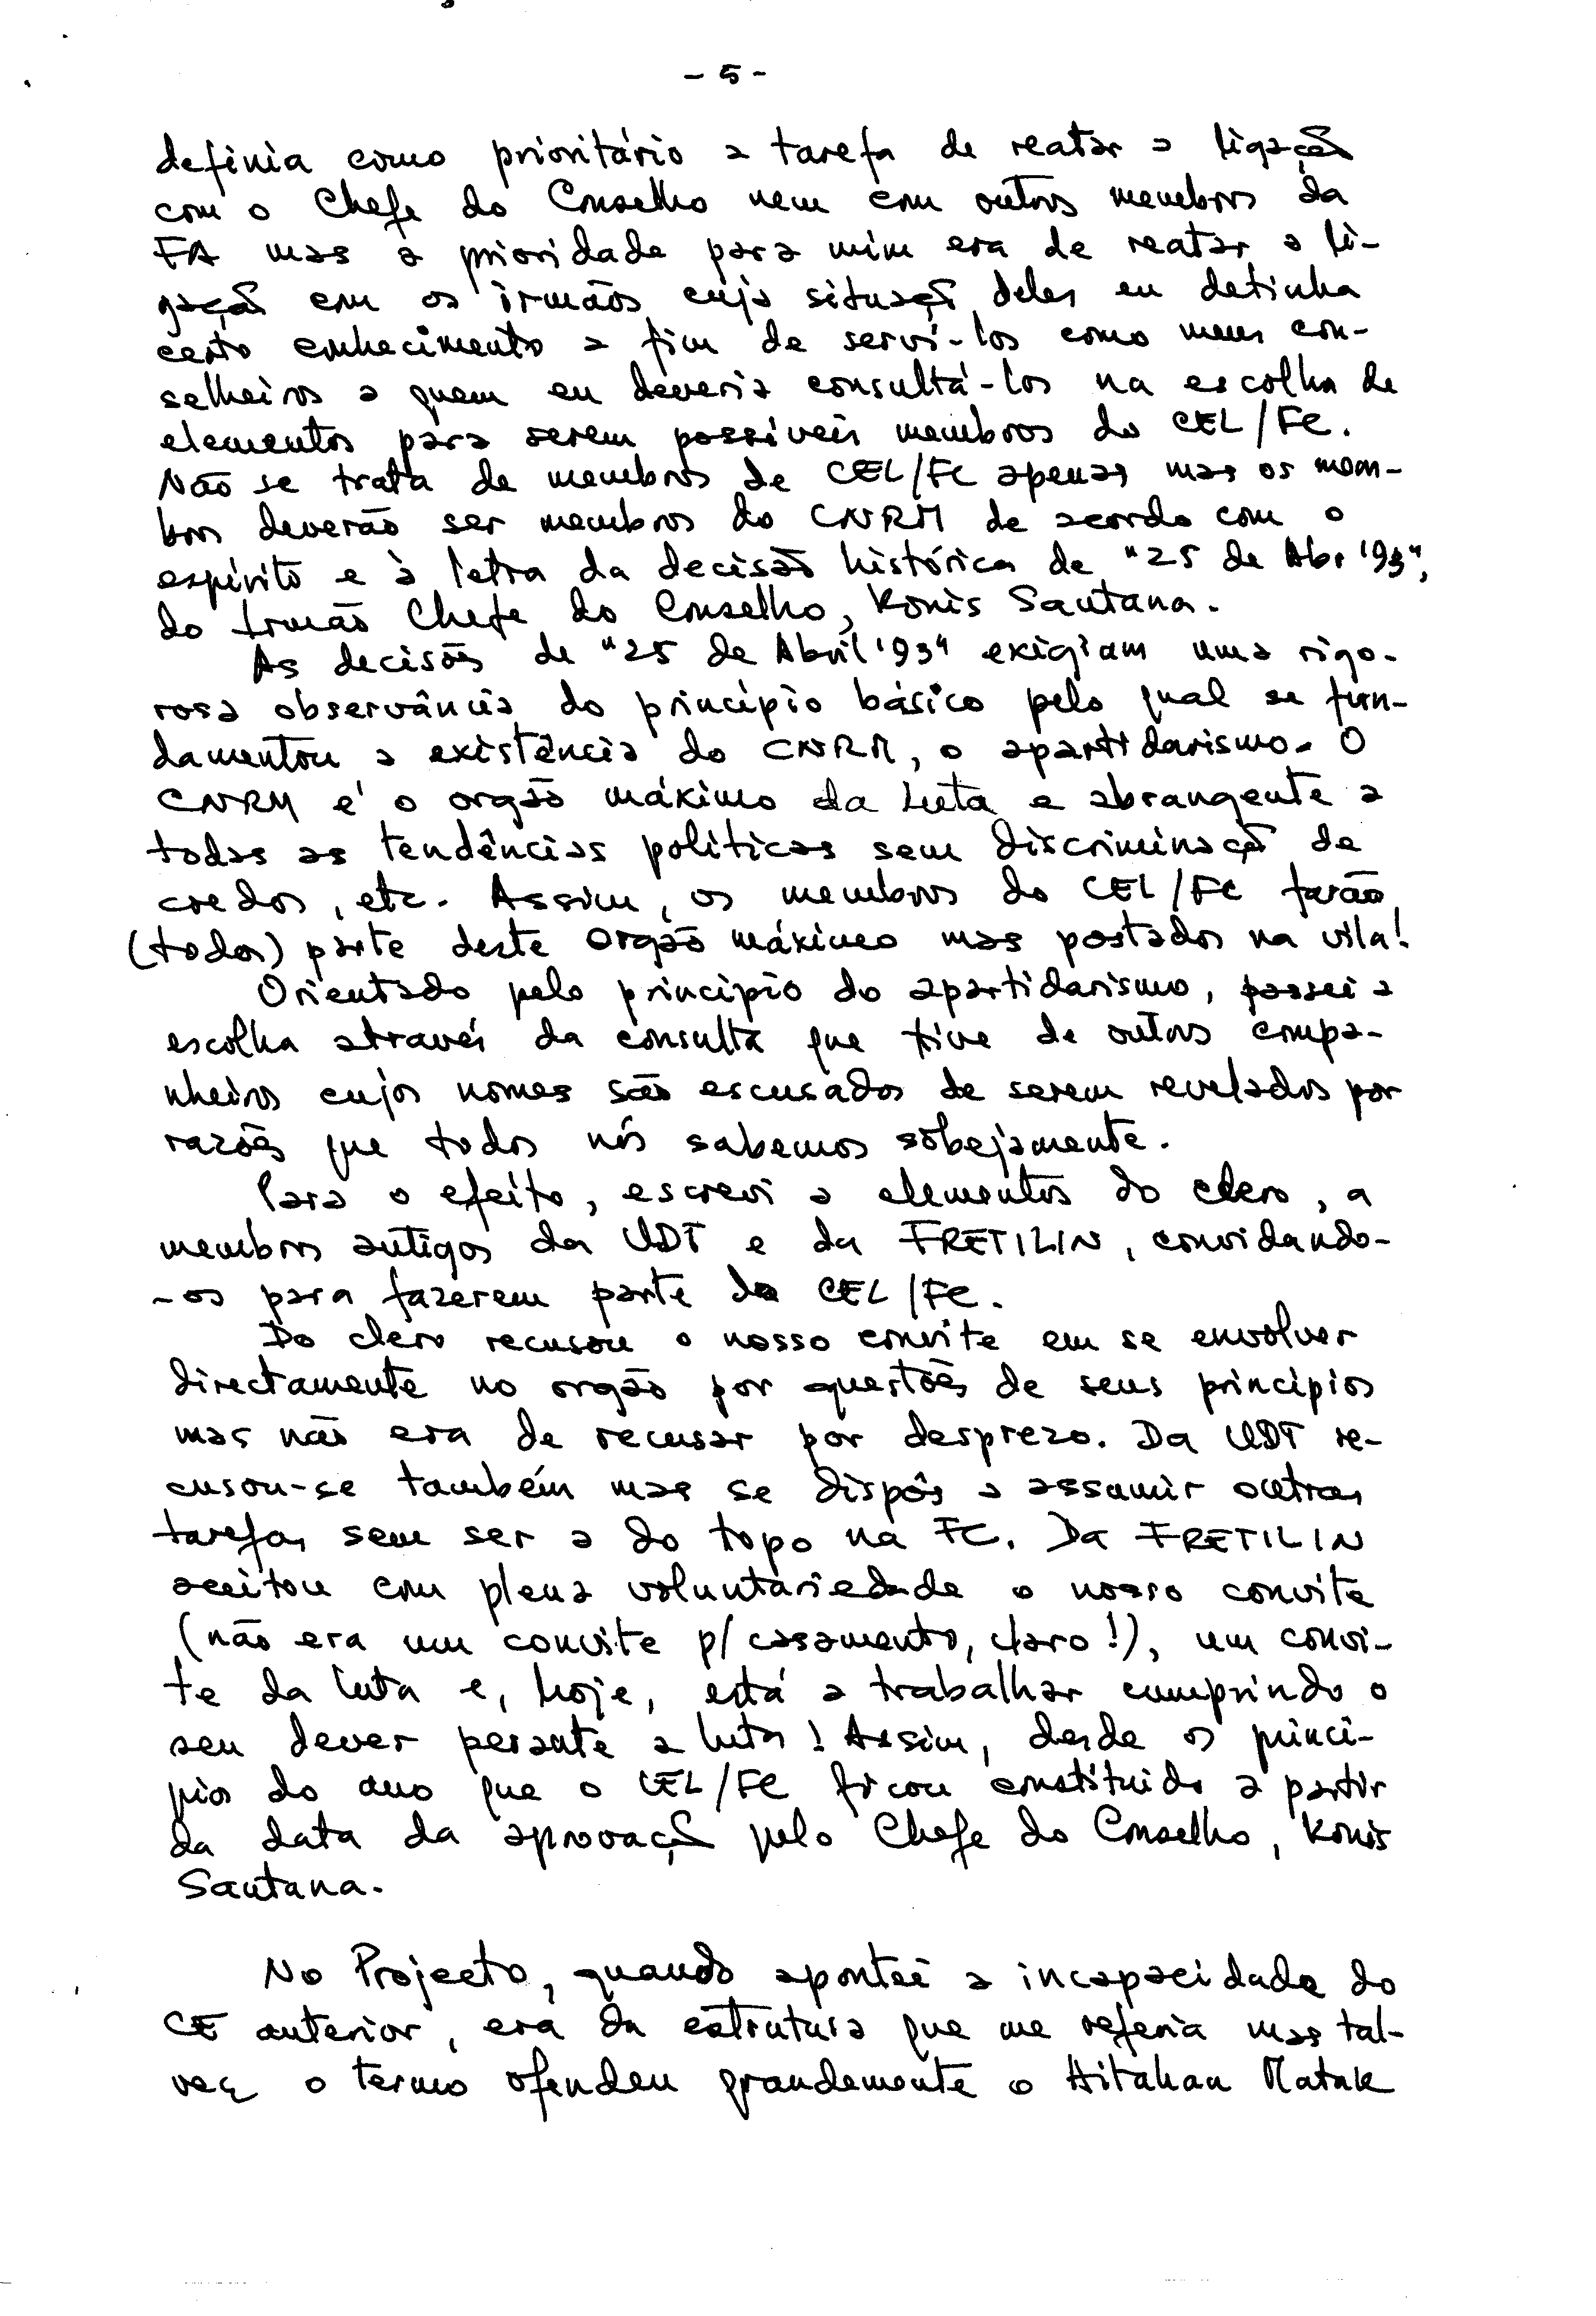 - 5 -
definia como prioritário a tarefa de reatar a ligação
com o Chefe do Conselho nem com outros membros da
FA mas a prioridade para mim era de reatar a li-
gação com os irmãos cuja situação deles eu detinha
certo conhecimento a fim de serví-los como meus con-
selheiros a quem eu deveria consultá-los na escolha de
elementos para serem possíveis membros do CEL/FC.
Não se trata de membros de CEL/FC apenas mas os mem-
bros deverão ser membros do CNRM de acordo com o
espírito e à letra da decisão histórica de "25 de Abr '93",
do Irmão Chefe do Conselho, Konis Santana.
As decisões de "25 de Abril '93" exigiam uma rigo-
rosa observância do princípio básico pelo qual se fun-
damentou a existência do CNRM, o apartidarismo. O
CNRM é o orgão máximo da Luta e abrangente a
todas as tendências políticas sem discriminação de
credos, etc. Assim, os membros do CEL/FC farão
(todos) parte deste Orgão máximo mas postados na vila!
Orientado pelo princípio do apartidarismo, passei a
escolha através da consulta que tive de outros compa-
nheiros cujos nomes são escusados de serem revelados por
razões que todos nós sabemos sobejamente.
Para o efeito, escrevi a elementos do clero, a
membros antigos da UDT e da FRETILIN, convidando-
-os para fazerem parte do CEL/FC.
Do clero recusou o nosso convite em se envolver
directamente no orgão por questões de seus princípios
mas não era de recusar por desprezo. Da UDT re-
cusou-se também mas se dispôs a assumir outras
tarefas sem ser a do topo na FC. Da FRETILIN
aceitou com plena voluntariedade o nosso convite
(não era um convite p/ casamento, claro!), um convi-
te da luta e, hoje, está a trabalhar cumprindo o
seu dever perante a luta! Assim, desde os princí-
pios do ano que o CEL/FC ficou constituído a partir
da data da aprovação pelo Chefe do Conselho, Konis
Santana.
No Projecto, quando apontei a incapacidade do
CE anterior, era da estrutura que me referia mas tal-
vez o termo ofendeu grandemente o Aitahan Matak